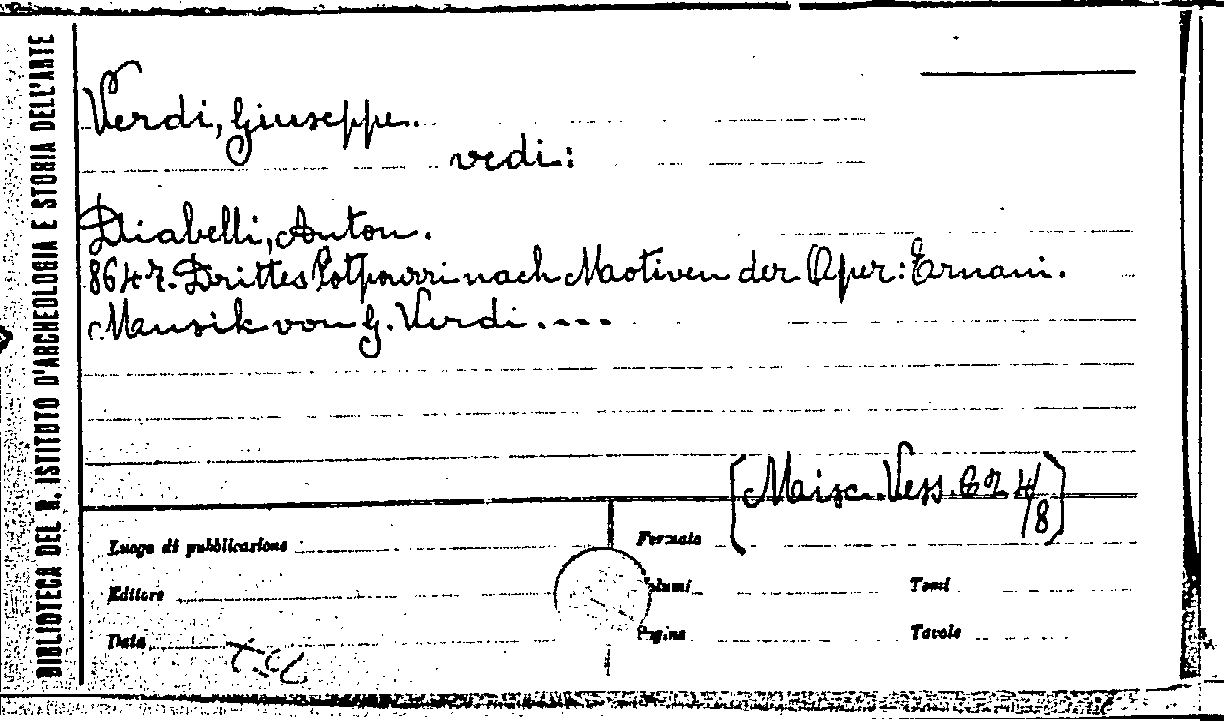 BIBLIOTECA DEL R. ISTITUTO D'ARCHEOLOGIA E STORIA DELL'ARTE
Verdi, Giuseppe.
vedi:
Diabelli, Anton.
Drittes Potpourri nach Motiven der Oper: Ernani.
Mausik von G. Verdi. ----
[Misc. Vess. 4/8]
Luogo di pubblicazione
Formato
Editore
Volumi
Tomi
Data
Pagine
Tavole